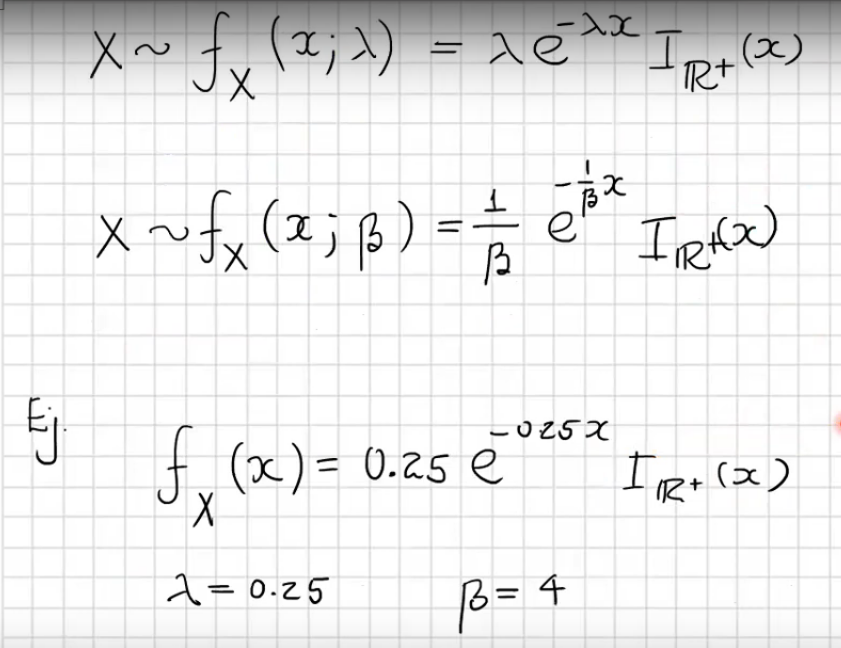 X ~ f_X (x; λ) = λ e^{-λx} I_{ℝ+} (x)
X ~ f_X (x; β) = \frac{1}{β} e^{-\frac{1}{β}x} I_{ℝ+} (x)
Ej.
f_X (x) = 0.25 e^{-025x} I_{ℝ+} (x)
λ = 0.25 β = 4